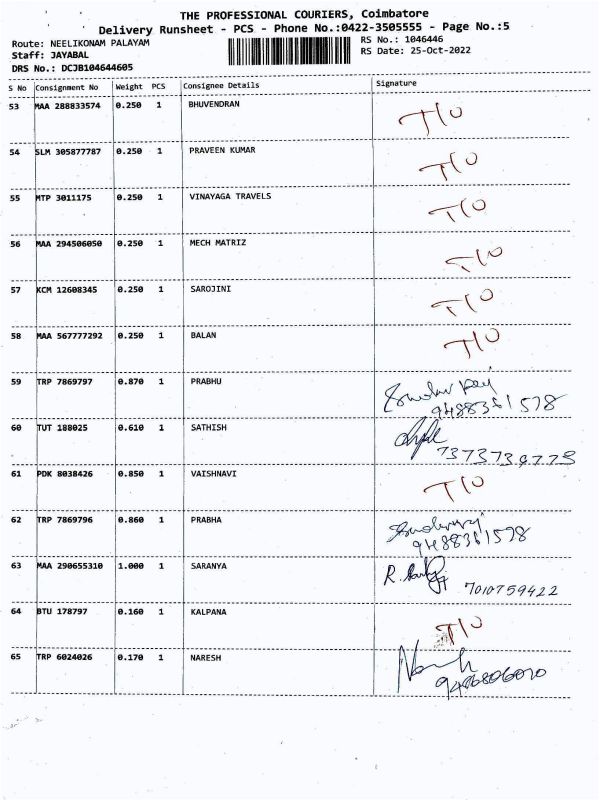 THE PROFESSIONAL COURIERS, Coimbatore
Delivery Runsheet - PCS - Phone No.:0422-3505555 - Page No.:5
Route: NEELIKONAM PALAYAM
RS No.: 1046446
Staff: JAYABAL
RS Date: 25-Oct-2022
DRS No.: DCJB104644605
S No Consignment No Weight PCS Consignee Details Signature
53 MAA 288833574 0.250 1 BHUVENDRAN T/O
54 SLM 305877787 0.250 1 PRAVEEN KUMAR T/O
55 MTP 3011175 0.250 1 VINAYAGA TRAVELS T/O
56 MAA 294506050 0.250 1 MECH MATRIZ T/O
57 KCM 12608345 0.250 1 SAROJINI T/O
58 MAA 567777292 0.250 1 BALAN T/O
59 TRP 7869797 0.870 1 PRABHU
9488361578
60 TUT 188025 0.610 1 SATHISH
61 PDK 8038426 0.850 1 VAISHNAVI T/O
62 TRP 7869796 0.860 1 PRABHA
9488361578
63 MAA 290655310 1.000 1 SARANYA R.
7010759422
64 BTU 178797 0.160 1 KALPANA T/O
65 TRP 6024026 0.170 1 NARESH